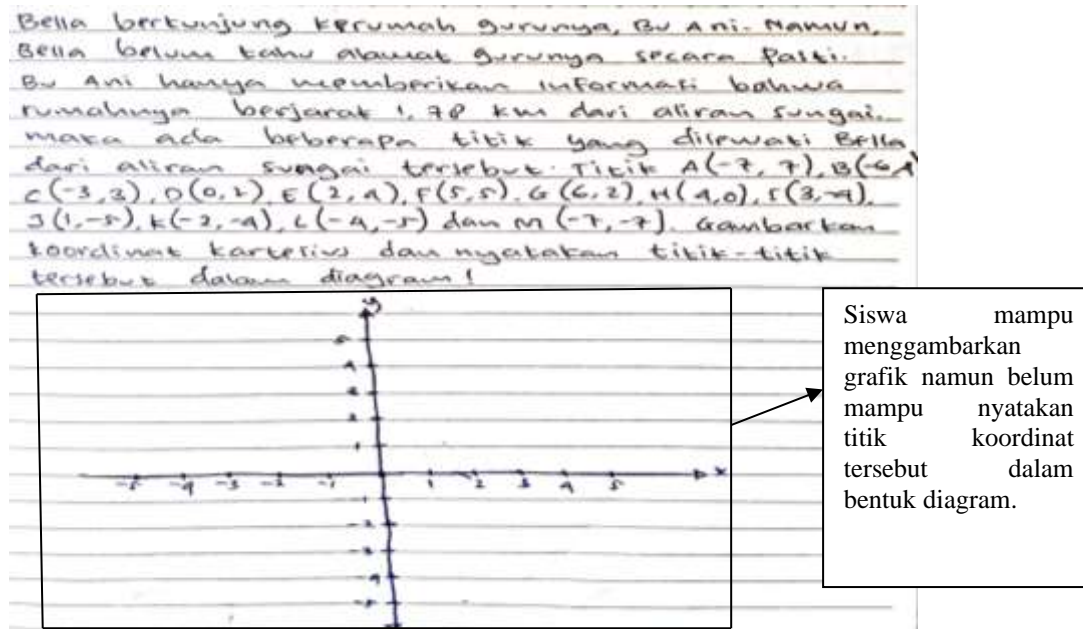 Bella berkunjung kerumah gurunya, Bu Ani. Namun,
Bella belum tahu alamat gurunya secara Pasti.
Bu Ani hanya memberikan informasi bahwa
rumahnya berjarak 1,78 km dari aliran sungai.
maka ada beberapa titik yang dilewati Bella
dari aliran sungai tersebut. Titik A(-7, 7), B(-6,4)
C(-3,3), D(0,2), E(2,4), F(5,5), G(6,2), H(4,0), I(3,-4).
J(1,-5), K(-2,-4), L(-4,-5) dan M(-7,-7). Gambarkan
koordinat kartesius dan nyatakan titik-titik
tersebut dalam diagram!
y
5
4
3
2
1
-5 -4 -3 -2 -1 1 2 3 4 5 x
-1
-2
-3
-4
-5
Siswa mampu
menggambarkan
grafik namun belum
mampu nyatakan
titik koordinat
tersebut dalam
bentuk diagram.